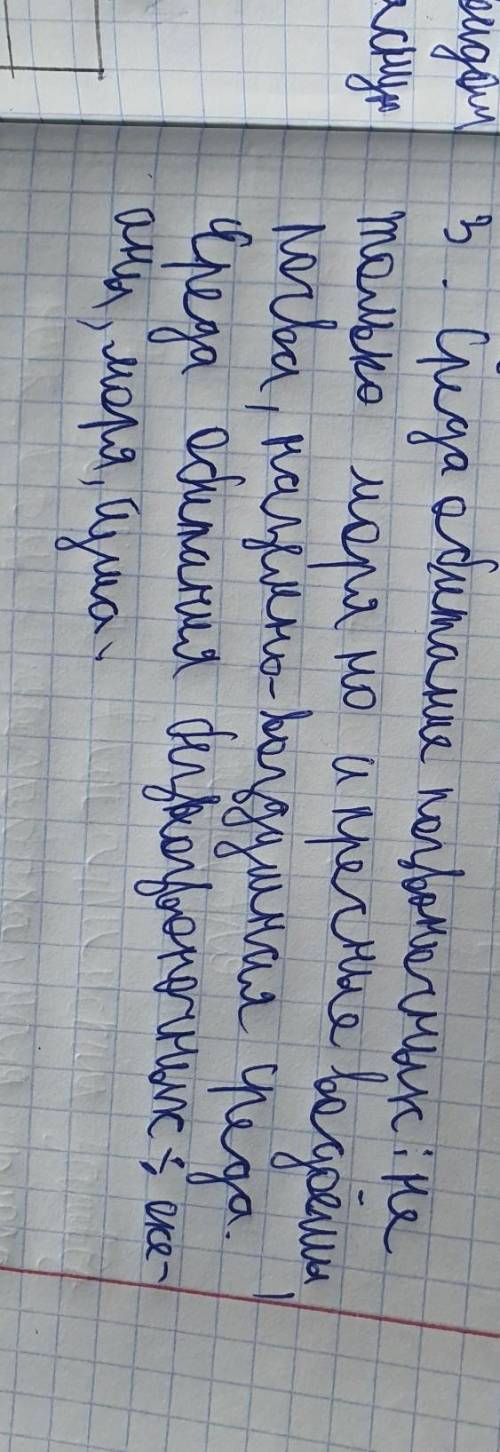 3. Среда обитание позвоночных: не
только моря но и пресные водоёмы,
почва, наземно-воздушная среда.
Среда обитания безпозвоночных:, оке-
аны, моря, суша.